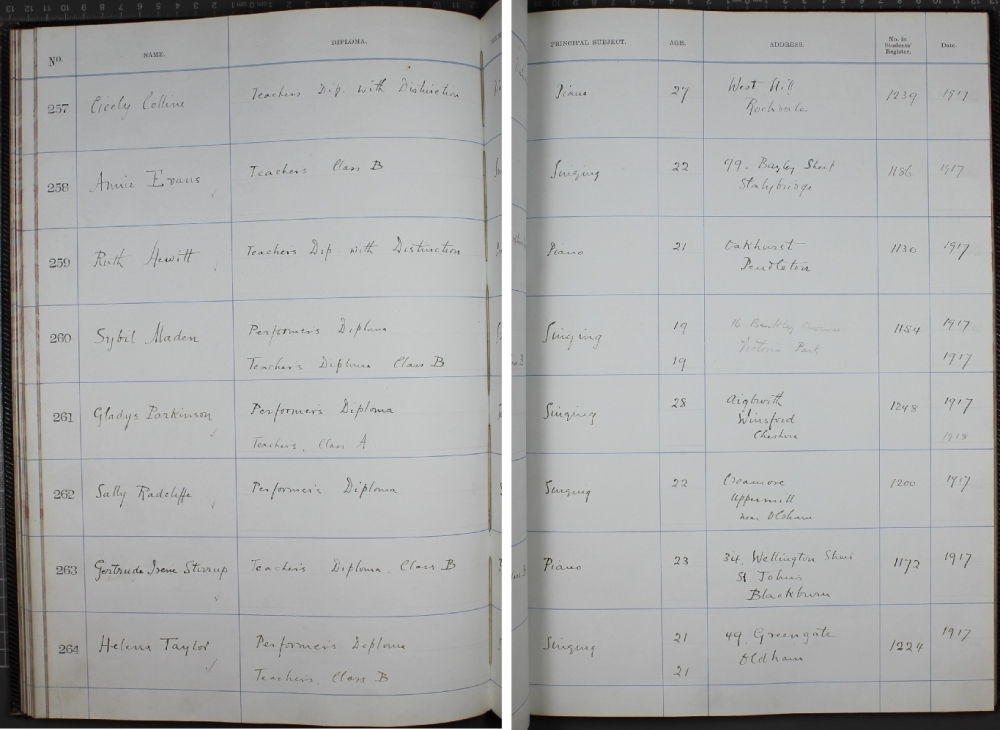 No. NAME. DIPLOMA. PRINCIPAL SUBJECT. AGE. ADDRESS. No. in Students' Register. Date.
257 Cicely Collins Teachers Dip. with Distinction Piano 27 West Hill 1239 1917
Rochdale
258 Annie Evans Teachers Class B Singing 22 99. Bayley Street 1186 1917
Stalybridge
259 Ruth Hewitt Teachers Dip. with Distinction Piano 21 Oakhurst 1130 1917
Pendleton
260 Sybil Maden Performers Diploma Singing 19 1154 1917
Teachers Diploma Class B 19 Victoria Park 1917
261 Gladys Parkinson Performers Diploma Singing 28 Aigburth 1248 1917
Winsford
Teachers, Class A Cheshire 1918
262 Sally Radcliffe Performer's Diploma Singing 22 1200 1917
Uppermill
near Oldham
263 Gertrude Irene Stirrup Teachers Diploma, Class B Piano 23 34, Wellington Street 1172 1917
St John's
Blackburn
264 Helena Taylor Performer's Diploma Singing 21 49 Greengate 1224 1917
Oldham
Teachers, Class B 21